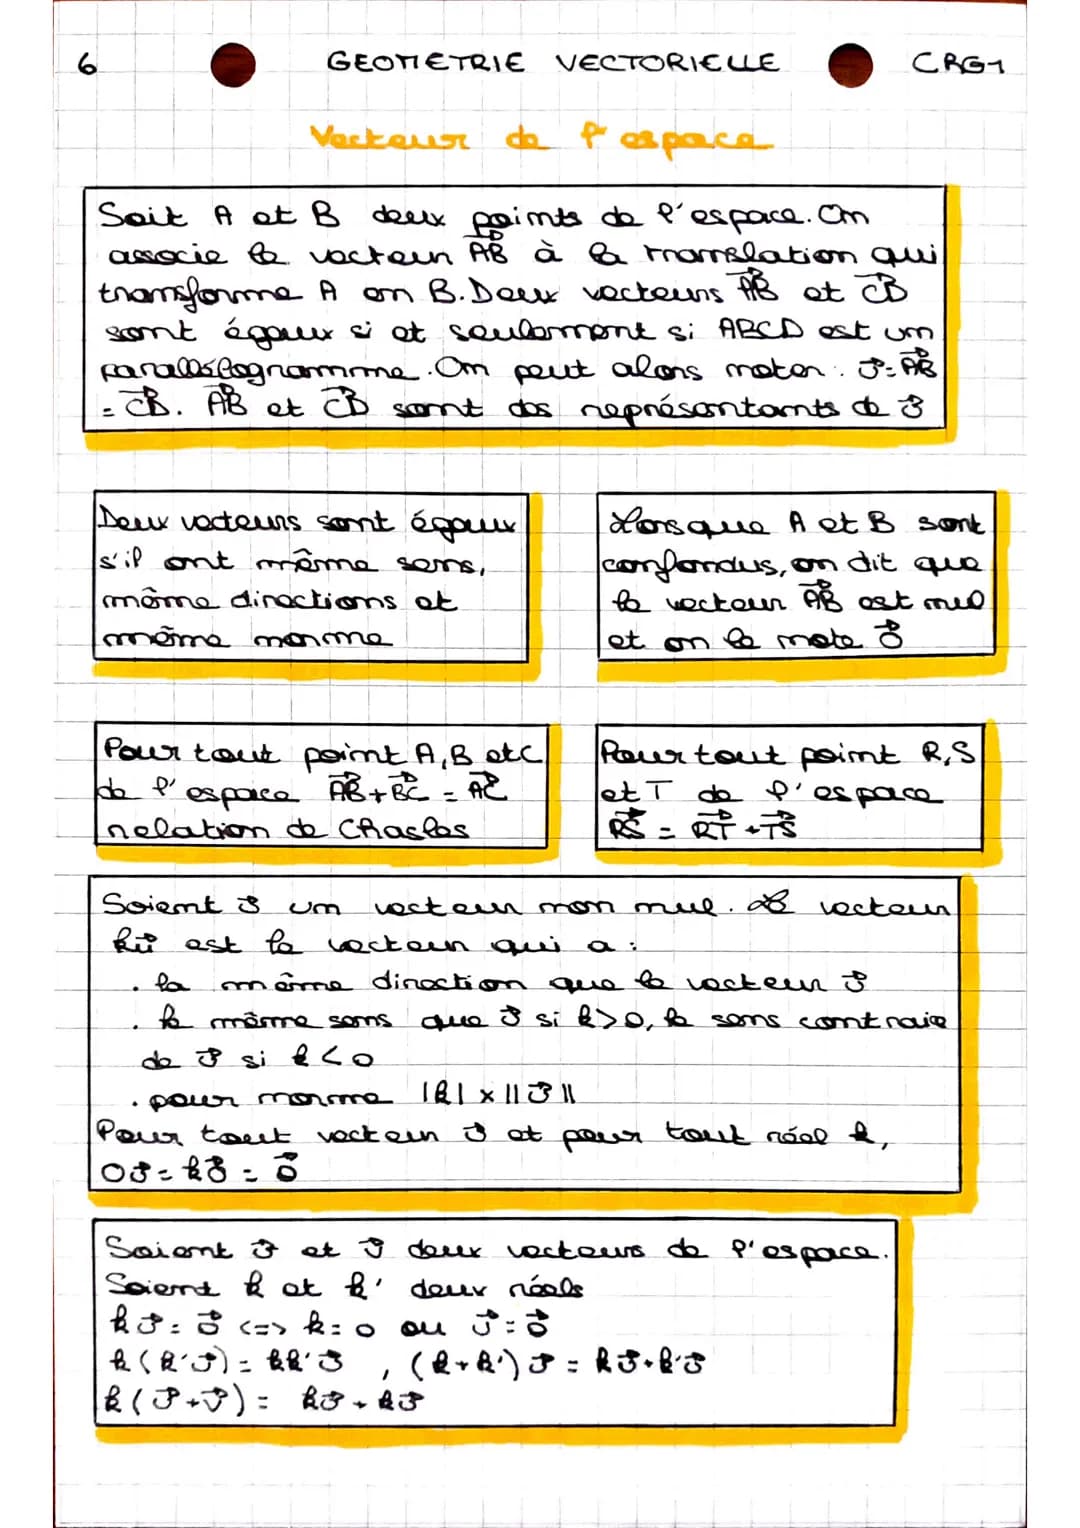 6 GEOMETRIE VECTORIELLE CRG1
Vecteur de l'espace
Soit A et B deux points de l'espace. On
associe le vecteur A⃗B⃗ à la translation qui
transforme A en B. Deux vecteurs A⃗B⃗ et C⃗D⃗
sont égaux si et seulement si ABCD est un
parallélogramme. On peut alors noter : u⃗ = A⃗B⃗
= C⃗D⃗. A⃗B⃗ et C⃗D⃗ sont des représentants de u⃗
Deux vecteurs sont égaux
s'il ont même sens,
même directions et
même norme
Lorsque A et B sont
confondus, on dit que
le vecteur A⃗B⃗ est nul
et on le note 0⃗
Pour tout point A, B et C
de l'espace A⃗B⃗ + B⃗C⃗ = A⃗C⃗
relation de Chasles
Pour tout point R, S
et T de l'espace
R⃗S⃗ = R⃗T⃗ + T⃗S⃗
Soient u⃗ un vecteur non nul. Le vecteur
ku⃗ est le vecteur qui a :
. la même direction que le vecteur u⃗
. le même sens que u⃗ si k>0, le sens contraire
de u⃗ si k<0
. pour norme |k| x ||u⃗||
Pour tout vecteur u⃗ et pour tout réel k,
0u⃗ = k0⃗ = 0⃗
Soient u⃗ et v⃗ deux vecteurs de l'espace.
Soient k et k' deux réels
ku⃗ = 0⃗ <=> k = 0 ou u⃗ = 0⃗
k(k'u⃗) = kk'u⃗ , (k+k')u⃗ = ku⃗ + k'u⃗
k(u⃗+v⃗) = ku⃗ + kv⃗